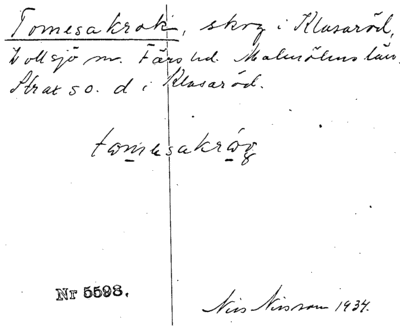 Tomesakrok, skog i Klasaröd,
Vollsjö sn. Färs hd. Malmöhus län.
Strax so. d i Klasaröd.
tomesakrȧg
Nr 5598.
Nils Nilsson 1934.